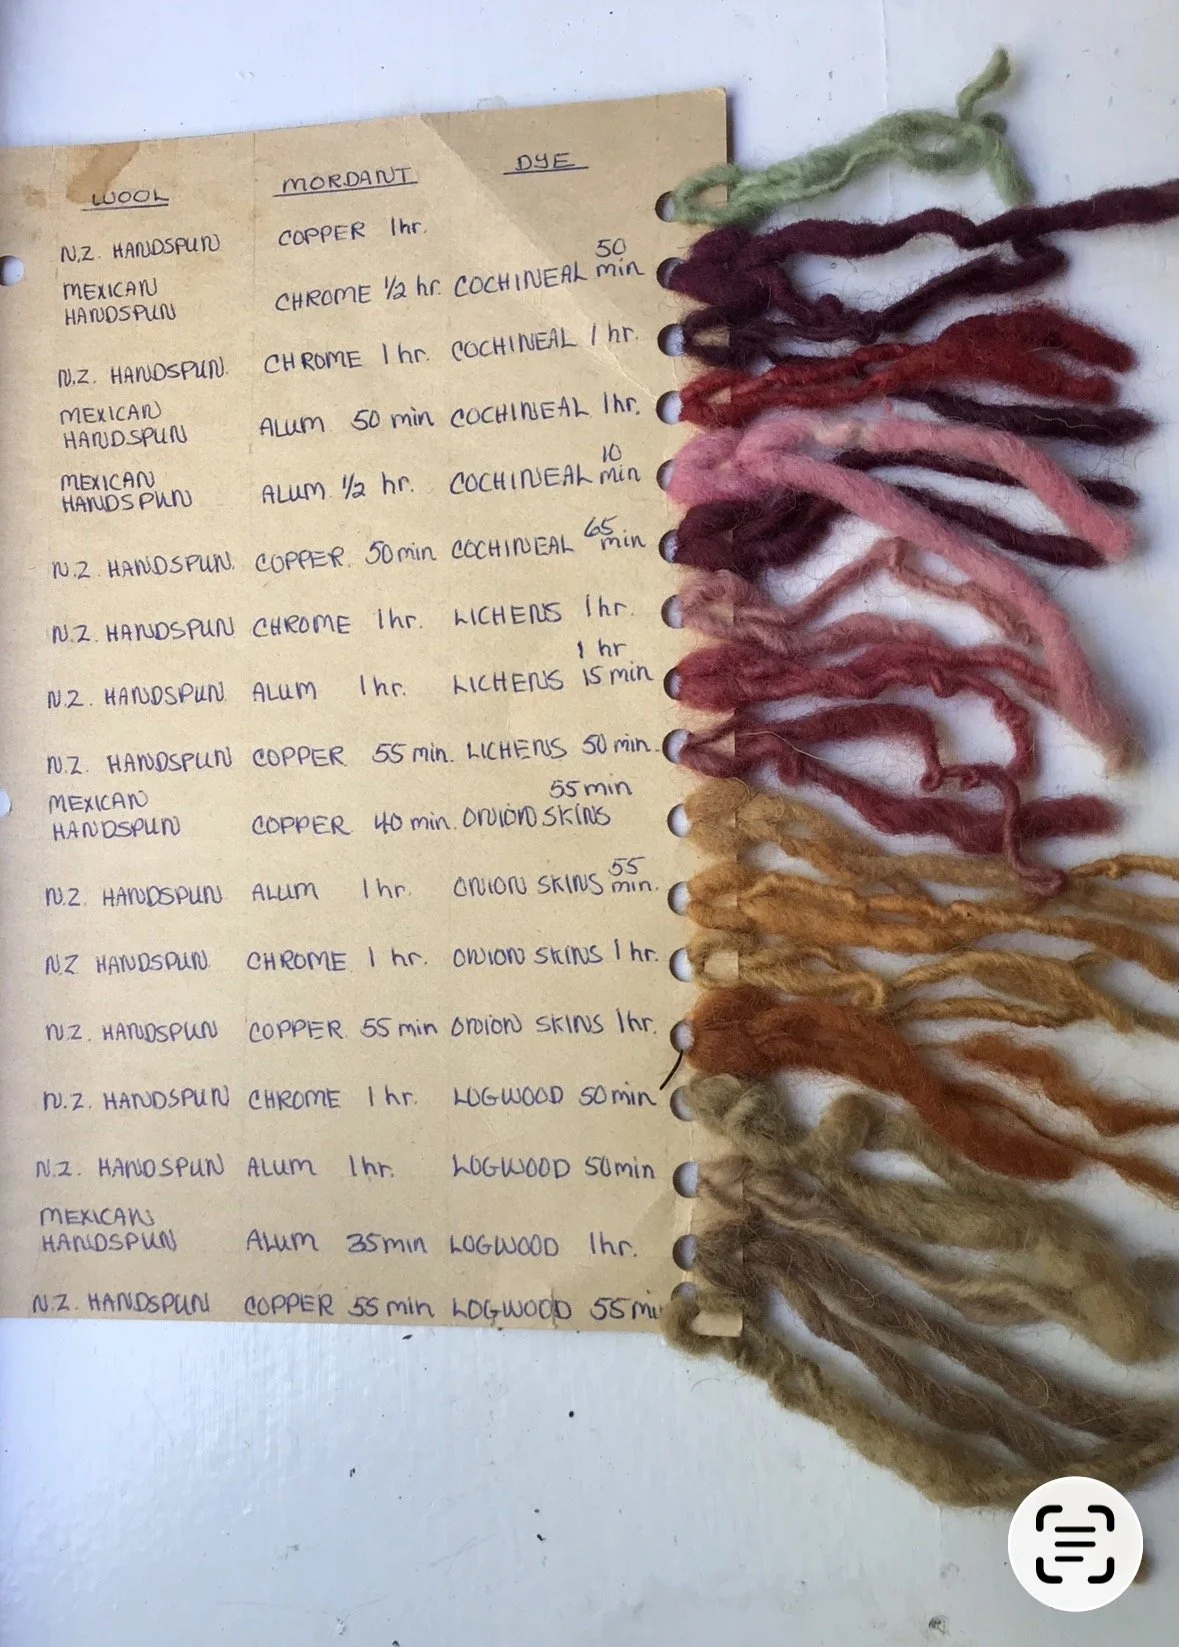 WOOL MORDANT DYE
N.Z. HANDSPUN COPPER 1hr.
MEXICAN HANDSPUN CHROME 1/2 hr. COCHINEAL 50 min
N.Z. HANDSPUN. CHROME 1 hr. COCHINEAL 1 hr.
MEXICAN HANDSPUN ALUM 50 min COCHINEAL 1hr.
MEXICAN HANDSPUN ALUM 1/2 hr. COCHINEAL 10 min
N.Z. HANDSPUN. COPPER. 50min COCHINEAL 65 min
N.Z. HANDSPUN CHROME 1hr. LICHENS 1hr.
N.Z. HANDSPUN. ALUM 1hr. LICHENS 1 hr 15 min
N.Z. HANDSPUN COPPER 55 min. LICHENS 50 min.
MEXICAN HANDSPUN COPPER 40 min. ONION SKINS 55 min
N.Z. HANDSPUN ALUM 1hr. ONION SKINS 55 min.
N.Z HANDSPUN. CHROME 1 hr. ONION SKINS 1 hr.
N.Z. HANDSPUN COPPER. 55 min ONION SKINS 1hr.
N.Z. HANDSPUN CHROME 1 hr. LOGWOOD 50min
N.Z. HANDSPUN ALUM 1hr. LOGWOOD 50min
MEXICAN HANDSPUN ALUM 35min LOGWOOD 1hr.
N.Z. HANDSPUN COPPER 55 min LOGWOOD 55 min